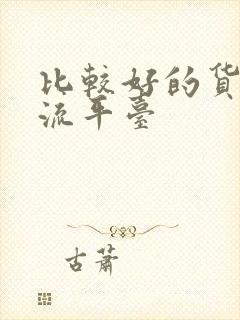 比较好的货
流平臺
古蕭